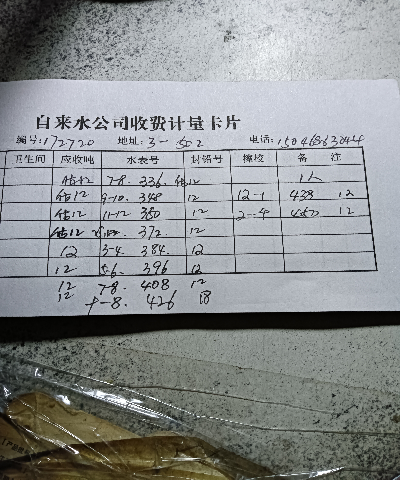 自来水公司收费计量卡片
编号:172720 地址:3-502 电话:15046863044
卫生间 应收吨 水表号 封铅号 擦校 备 注
估12 7-8. 336. 估12
估12 9-10. 348 12 12-1 438 12
估12 11-12 350 12 2-4 450 12
估12 372 12
12 3-4. 384. 12
12 5-6. 396 12
12 7-8 408 12
12 426 18